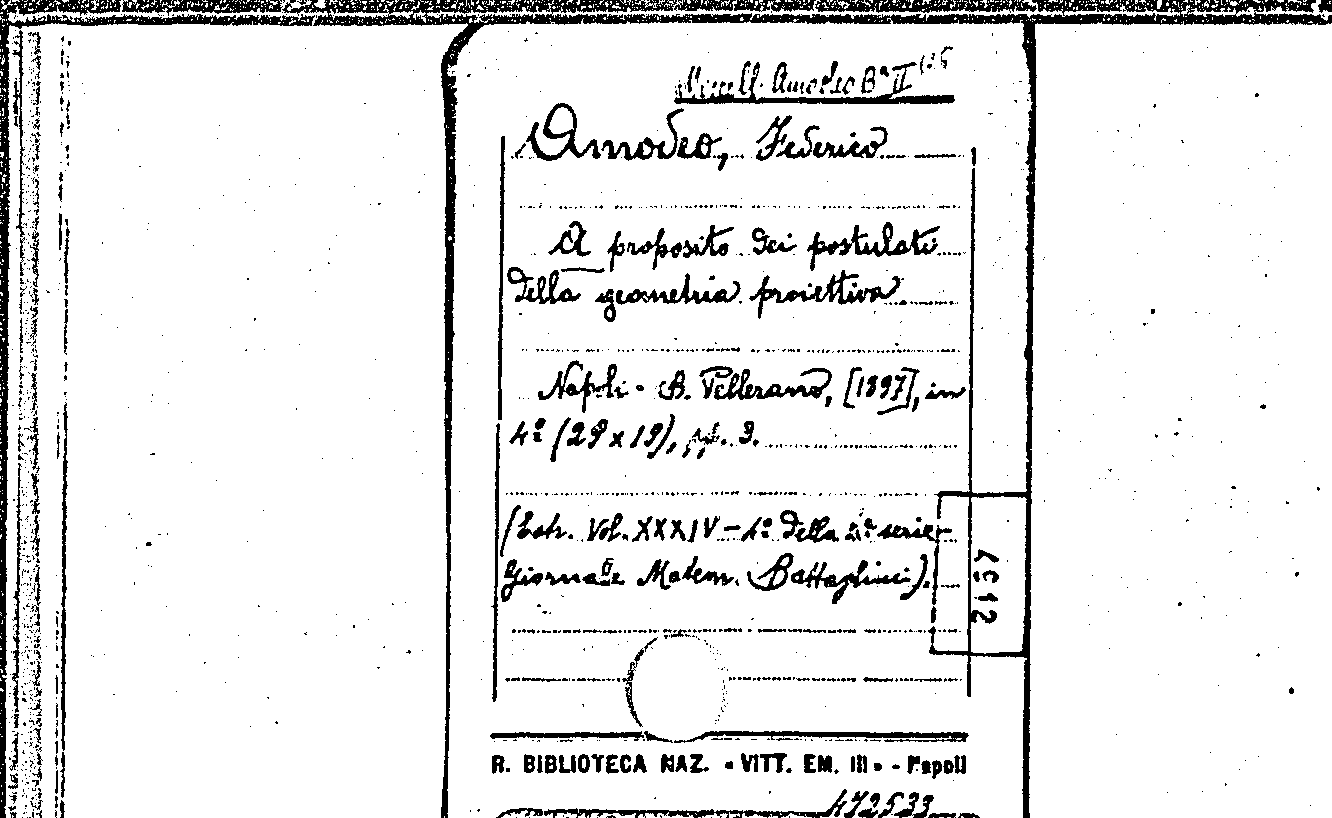 Miscell. Amodeo Bª II
Amodeo, Federico
A proposito dei postulati
della geometria proiettiva
Napoli - B. Pellerano, [1897], in
4º (29 x 19), pp. 3.
(Estr. Vol. XXXIV - 4º della 2ª serie -
Giornale Matem. Battaglini).
4912
R. BIBLIOTECA NAZ. « VITT. EM. III » - Napoli
472533